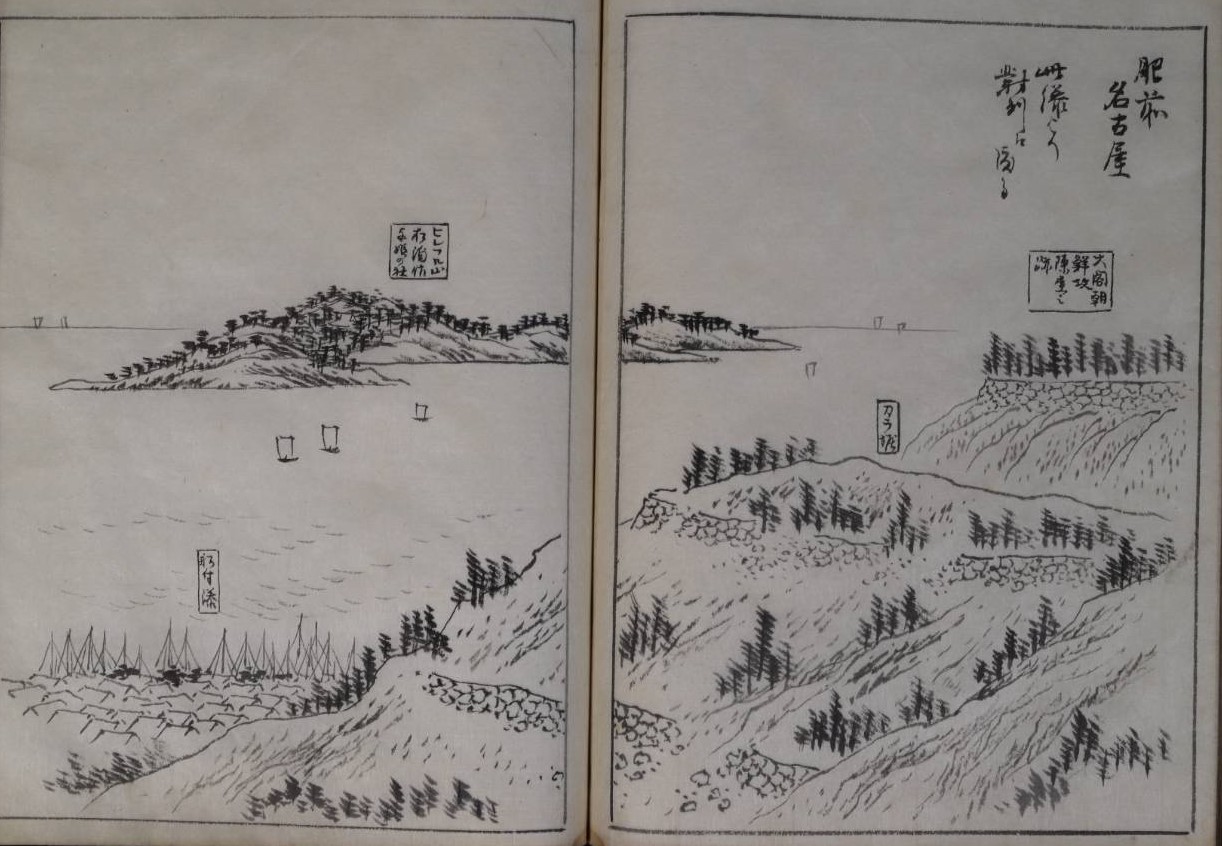 肥前
名古屋
此湊より
對州に渡る
大閤朝
鮮攻
陳屋之
跡
カラ堀
ヒレフル山
松浦佐
よ姫の社
船付湊